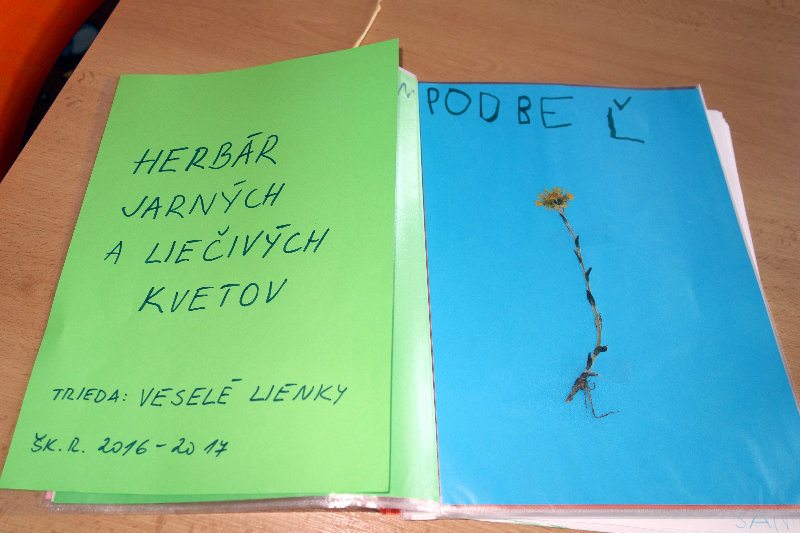 HERBÁR
JARNÝCH
A LIEČIVÝCH
KVETOV
TRIEDA: VESELÉ LIENKY
ŠK.R. 2016-2017
PODBE Ľ